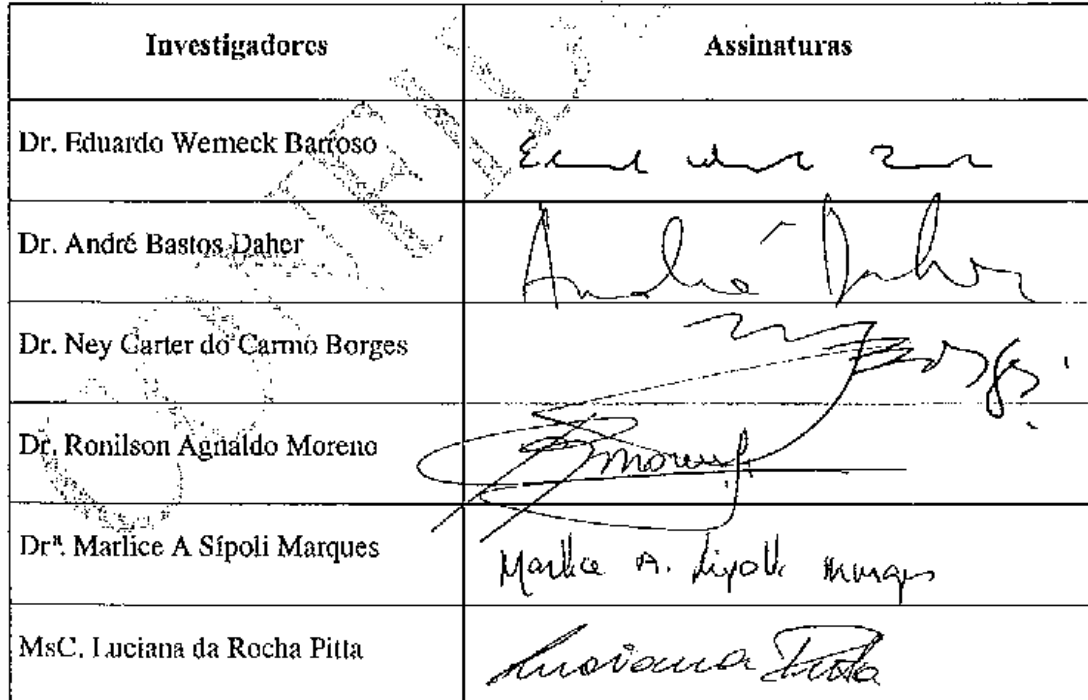 Investigadores Assinaturas
Dr. Eduardo Werneck Barroso
Dr. André Bastos Daher André Daher
Dr. Ney Carter do Carmo Borges Borges
Dr. Ronilson Agnaldo Moreno Moreno
Drª. Marlice A Sípoli Marques Marlice A. Sipoli Marques
MsC. Luciana da Rocha Pitta Luciana Pitta